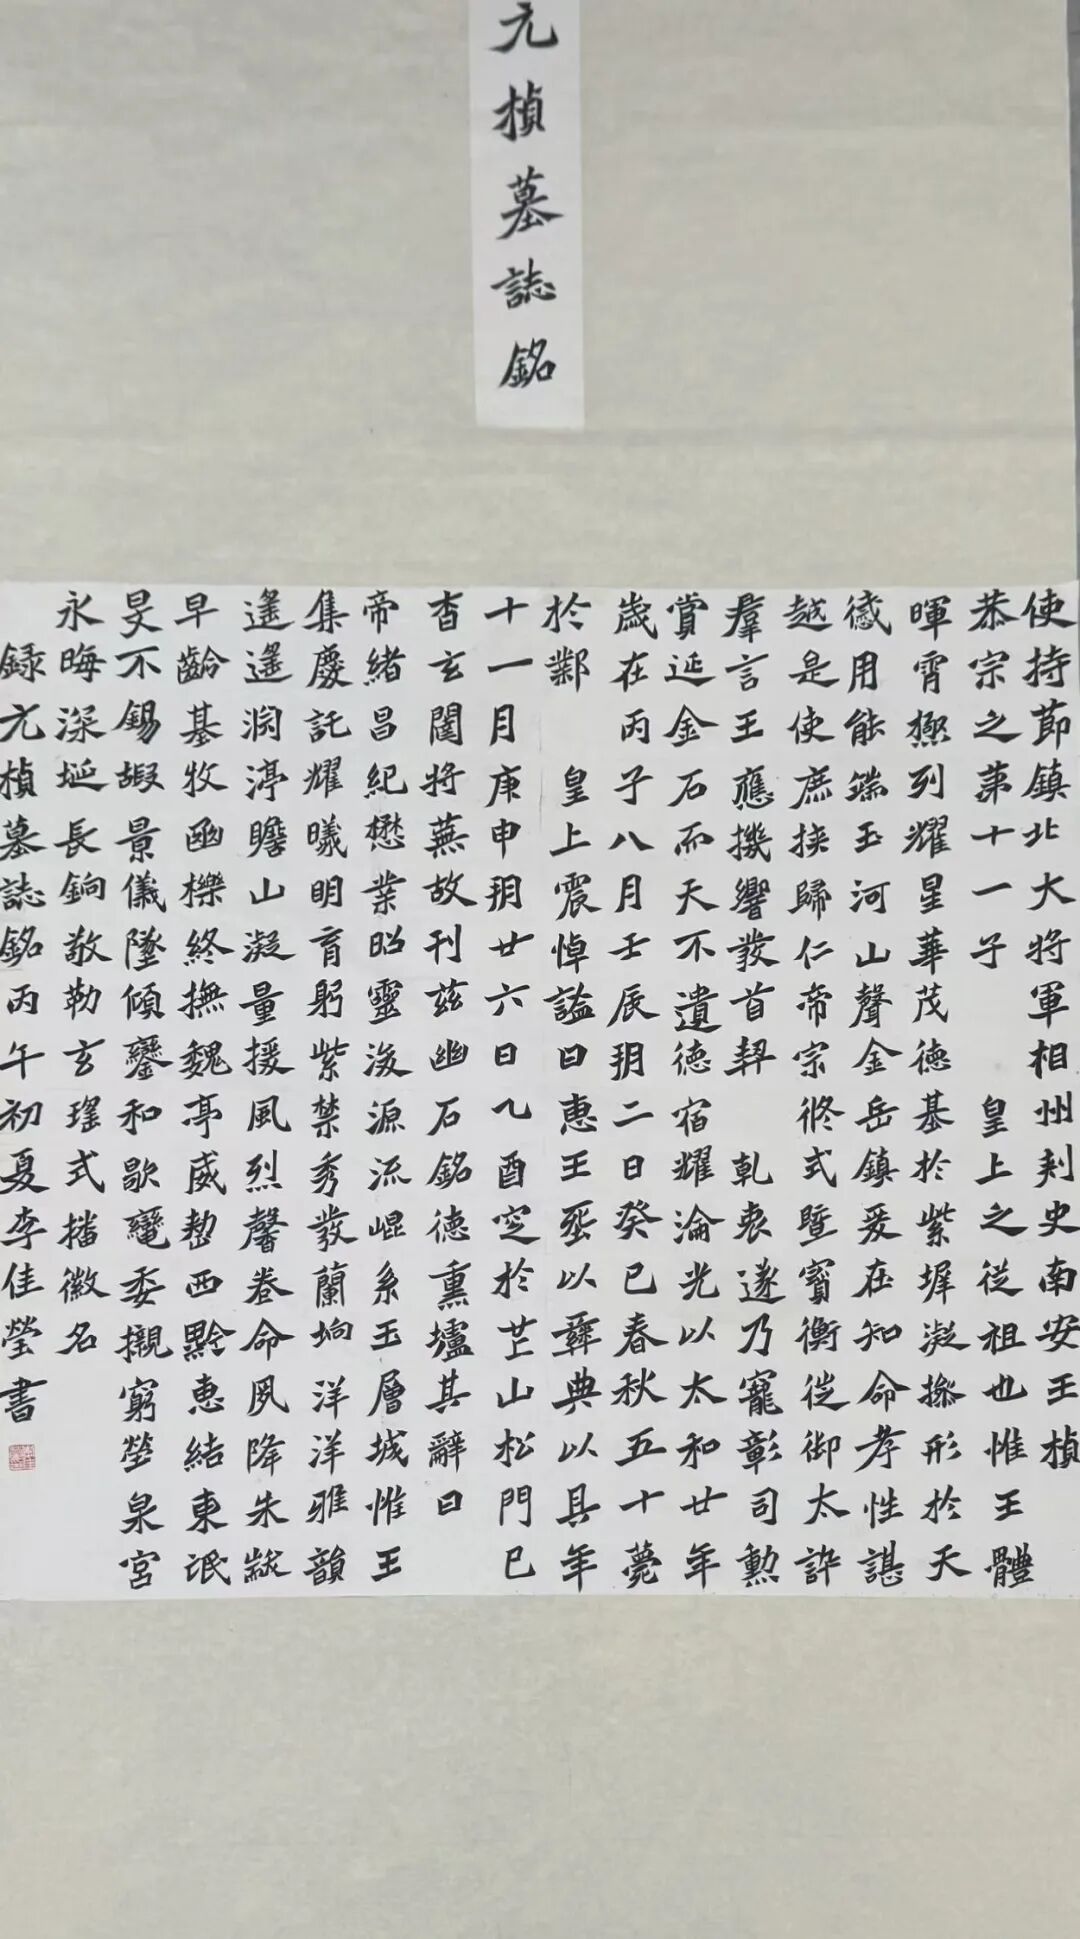 元楨墓誌銘
使持節鎮北大將軍相州刺史南安王楨
恭宗之第十一子 皇上之從祖也惟王體
暉霄極列耀星華茂德基於紫墀凝操形於天
感用能端玉河山聲金岳鎮爰在知命孝性諶
越是使庶族歸仁帝宗攸式暨寶衡徙御太訟
羣言王應機響發首契 乾衷遂乃寵彰司勳
賞延金石而天不遺德宿耀淪光以太和廿年
歲在丙子八月壬辰朔二日癸巳春秋五十薨
於鄴 皇上震悼謚曰惠王塟以彝典以其年
十一月庚申朔廿六日乙酉窆於芒山松門已
杳玄闥將蕪故刊茲幽石銘德熏壚其辭曰
帝緒昌紀懋業昭靈浚源流崐系玉層城惟王
集慶託耀曦明育躬紫禁秀發蘭坰洋洋雅韻
遙遙淵渟瞻山凝量援風烈馨卷命夙降朱黻
早齡基牧幽櫟終撫魏亭威整西黔惠結東氓
旻不錫嘏景儀墜傾鑾和歇轙委櫬窮塋泉宮
永晦深埏長鉰敬勒玄瑤式播徽名
録元楨墓誌銘丙午初夏李佳瑩書